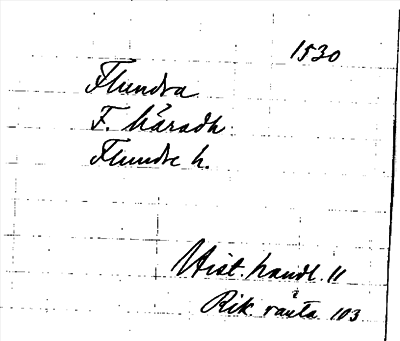 1530
Flundra
F. håradh
Flundre h.
Hist. handl. 11
Rik. ränta 103